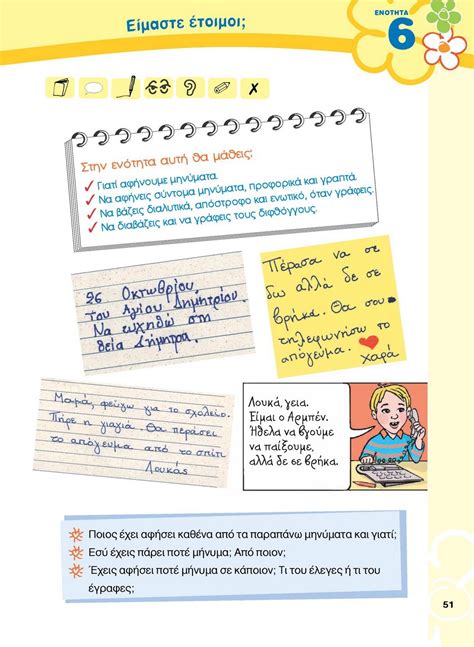 Είμαστε έτοιμοι;
ΕΝΟΤΗΤΑ
6
Στην ενότητα αυτή θα μάθεις:
Γιατί αφήνουμε μηνύματα.
Να αφήνεις σύντομα μηνύματα, προφορικά και γραπτά.
Να βάζεις διαλυτικά, απόστροφο και ενωτικό, όταν γράφεις.
Να διαβάζεις και να γράφεις τους διφθόγγους.
26 Οκτωβρίου.
του Αγίου Δημητρίου.
Να ευχηθώ στη
θεία Δήμητρα.
Πέρασα να σε
δω αλλά δε σε
βρήκα. Θα σου
τηλεφωνήσω το
απόγευμα.
Χαρά
Μαμά, φεύγω για το σχολείο.
Πήρε η γιαγιά. Θα περάσει
το απόγευμα από το σπίτι
Λουκάς
Λουκά, γεια.
Είμαι ο Αρμπέν.
Ήθελα να βγούμε
να παίξουμε,
αλλά δε σε βρήκα.
Ποιος έχει αφήσει καθένα από τα παραπάνω μηνύματα και γιατί;
Εσύ έχεις πάρει ποτέ μήνυμα; Από ποιον;
Έχεις αφήσει ποτέ μήνυμα σε κάποιον; Τι του έλεγες ή τι του
έγραφες;
51